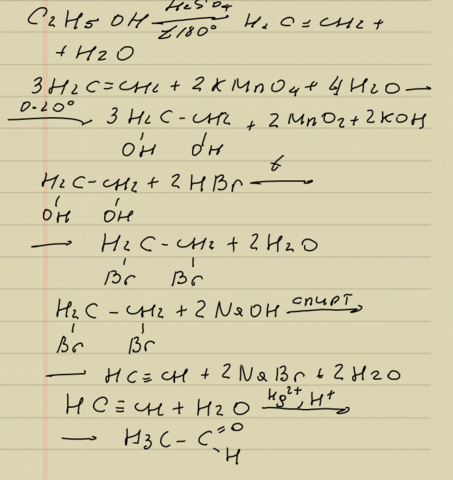 C2H5OH H2SO4 t180° H2C=CH2 +
+ H2O
3H2C=CH2 + 2KMnO4 + 4H2O →
0-20° → 3H2C-CH2 + 2MnO2 + 2KOH
OH OH
H2C-CH2 + 2HBr t →
OH OH
→ H2C-CH2 + 2H2O
Br Br
H2C-CH2 + 2NaOH спирт →
Br Br
→ HC≡CH + 2NaBr + 2H2O
HC≡CH + H2O Hg2+, H+ →
→ H3C-C=O
H